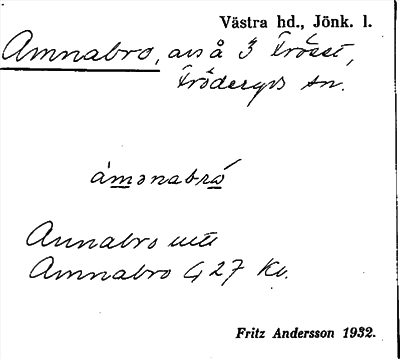 Västra hd., Jönk. l.
Amnabro, avs å 3 Trösst,
Fröderyds sn.
ámənabrǻ
Annabro
Amnabro G 27 Kv.
Fritz Andersson 1932.